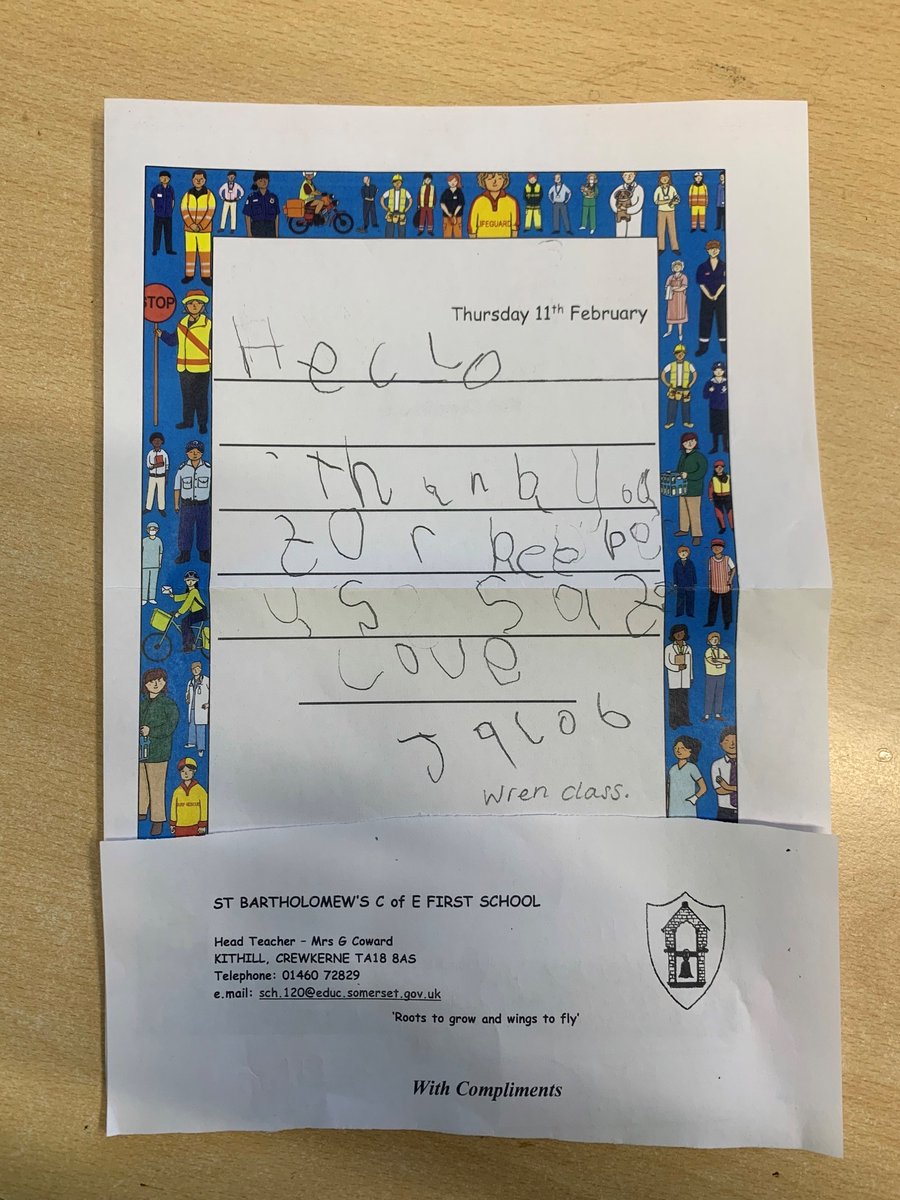 LIFEGUARD
STOP
Thursday 11th February
Hello
thank you
for keepe
us saf
love
Jacob
Wren class.
ST BARTHOLOMEW'S C of E FIRST SCHOOL
Head Teacher - Mrs G Coward
KITHILL, CREWKERNE TA18 8AS
Telephone: 01460 72829
e.mail: sch.120@educ.somerset.gov.uk
'Roots to grow and wings to fly'
With Compliments